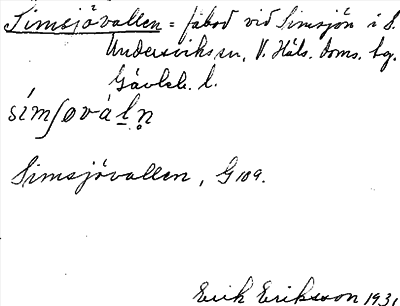 Simsjövallen = fäbod vid Simsjön i S.
Undersviks sn, V. Häls. doms. sg.
Gävleb. l.
simʃováḷn̥
Simsjövallen, G 109.
Erik Eriksson 1931